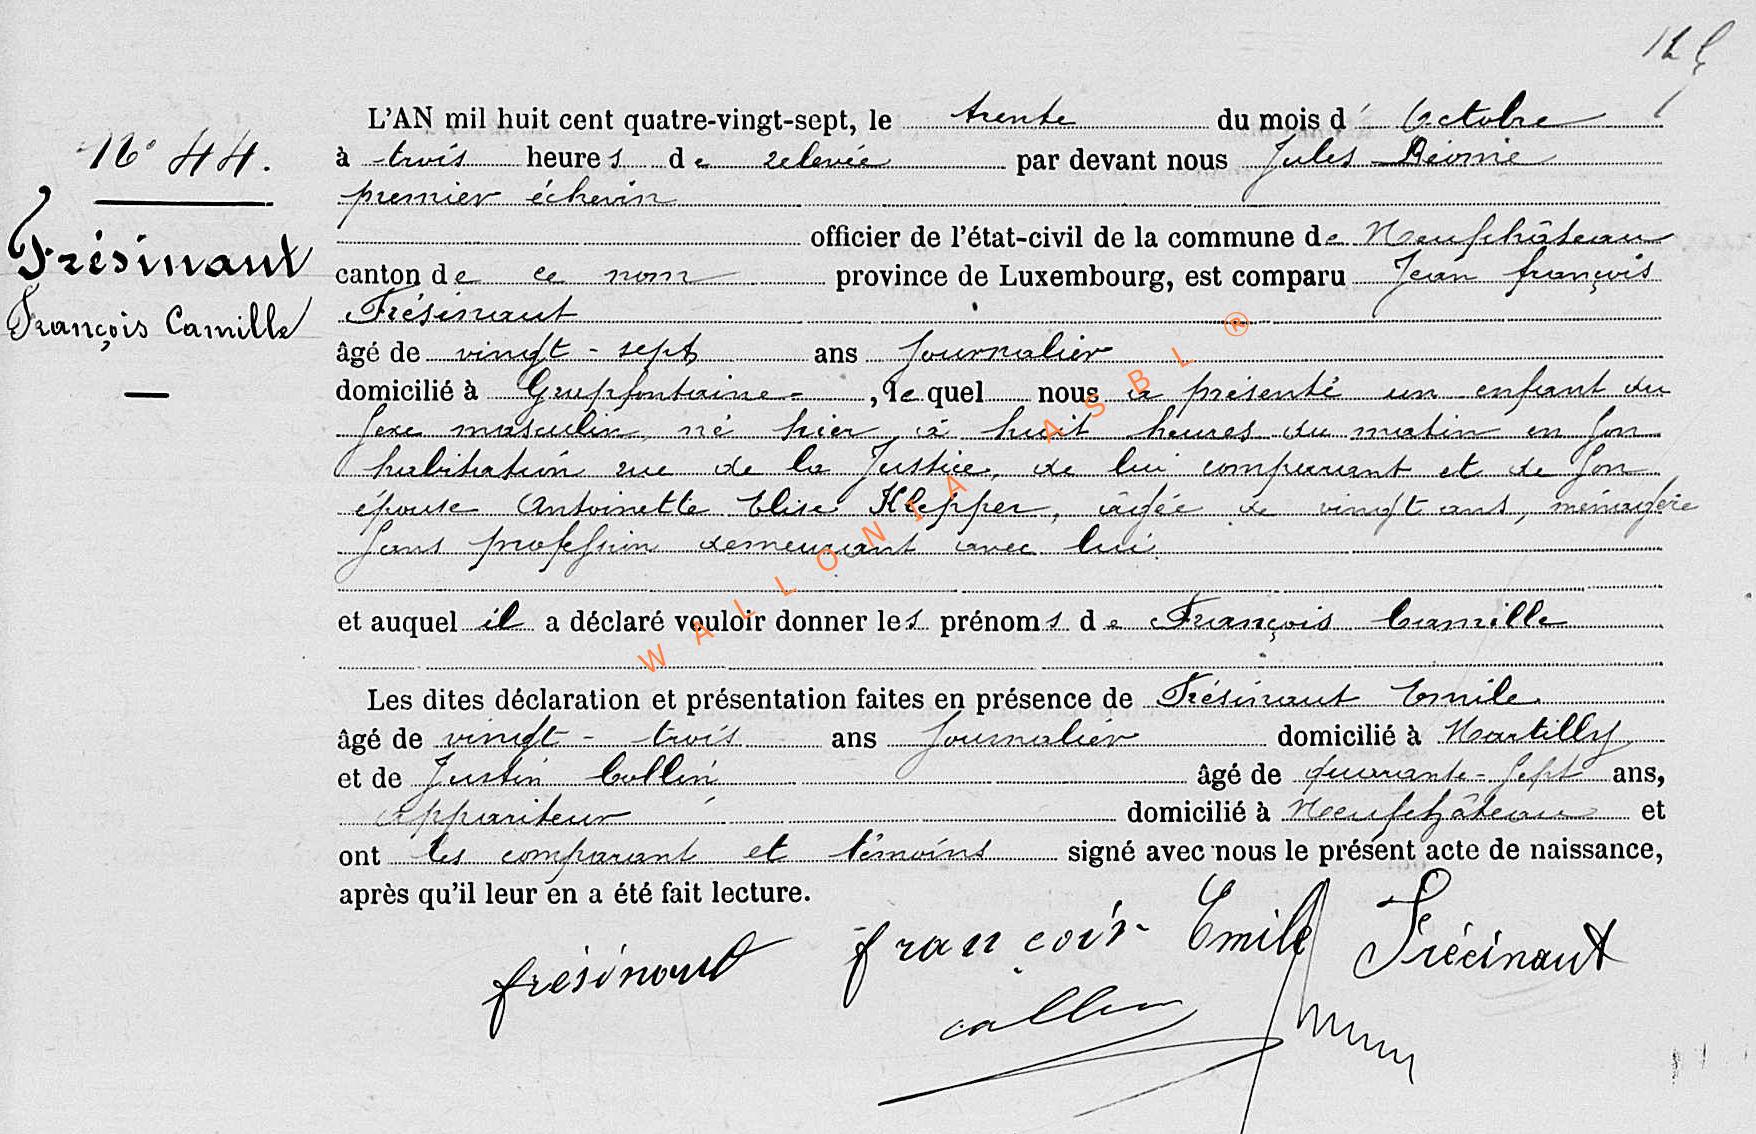 125
L'AN mil huit cent quatre-vingt-sept, le trente du mois d' Octobre
N° 44.
à trois heures de relevée par devant nous Jules
premier échevin
Frésinaut
officier de l'état-civil de la commune de Neufchâteau
canton de ce nom province de Luxembourg, est comparu Jean françois
François Camille
Frésinaut
âgé de vingt-sept ans Journalier
domicilié à Grapfontaine, lequel nous a présenté un enfant du
sexe masculin, né hier, à huit heures du matin en son
habitation rue de la Justice, de lui comparant et de son
épouse Antoinette Elise Klepper, âgée de vingt ans, ménagère
sans profession demeurant avec lui.
et auquel il a déclaré vouloir donner les prénoms de François Camille
Les dites déclaration et présentation faites en présence de Frésinaut Emile
âgé de vingt-trois ans Journalier domicilié à Hartilly
et de Justin Collin âgé de quarante-sept ans,
appariteur domicilié à Neufchâteau et
ont les comparant et témoins signé avec nous le présent acte de naissance,
après qu'il leur en a été fait lecture.
frésinaut françois Emile Frécinaut
collin
WALLONIA ASBL ®